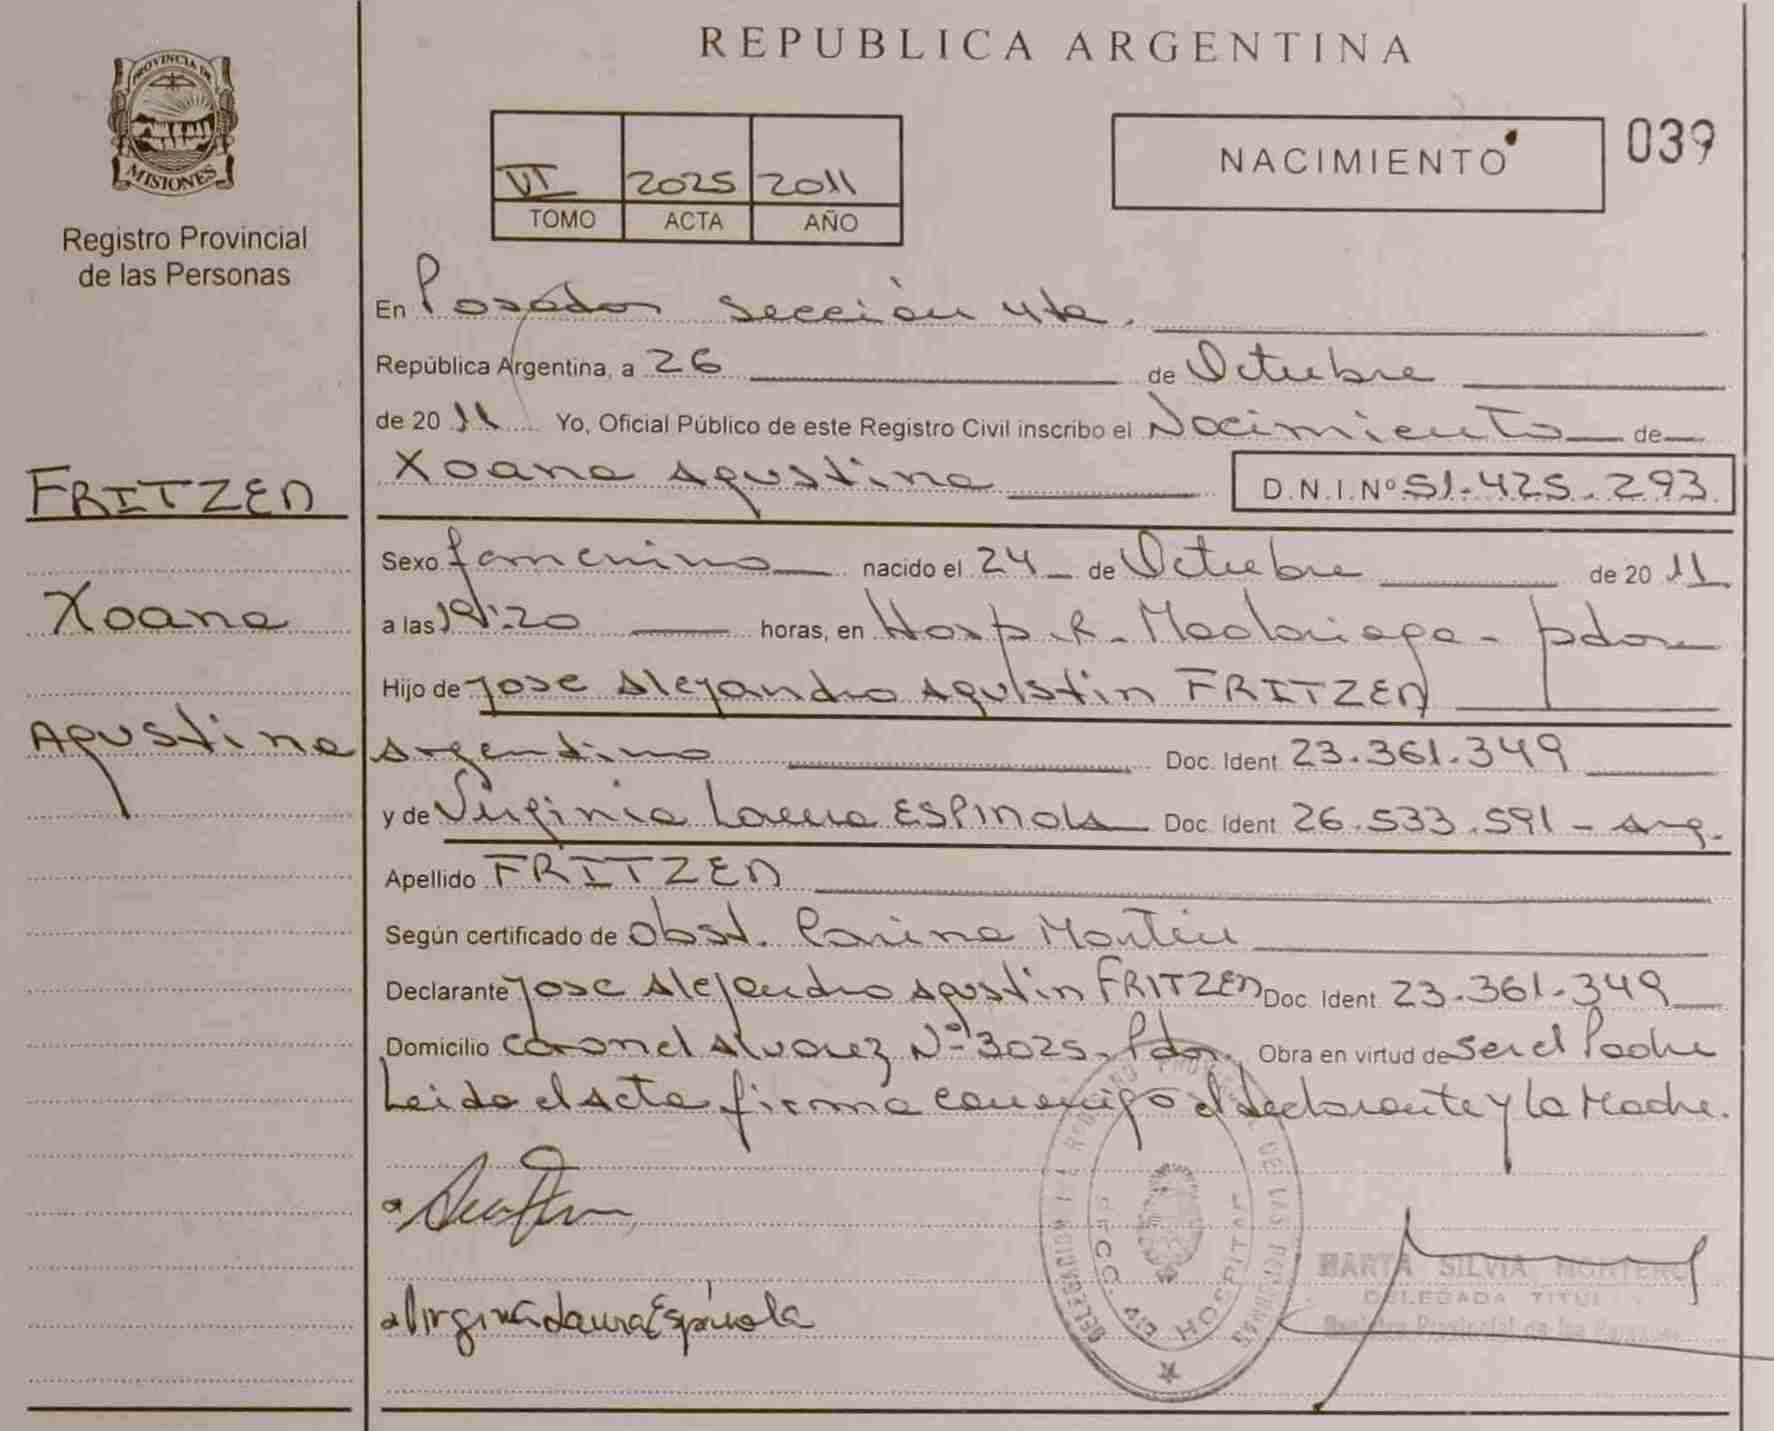 REPUBLICA ARGENTINA
PROVINCIA DE
MISIONES
Registro Provincial
de las Personas
VI 2025 2011
TOMO ACTA AÑO
NACIMIENTO
039
En Posadas sección 4ta.
República Argentina, a 26 de Octubre
de 20 11 Yo, Oficial Público de este Registro Civil inscribo el Nacimiento de
Xoana Agustina D.N.I.Nº 51.425.293
FRITZEN
Xoana
Agustina
Sexo femenino nacido el 24 de Octubre de 20 11
a las 19:20 horas, en Hosp. R. Madariaga - pdas
Hijo de Jose Alejandro Agustin FRITZEN
argentino Doc. Ident 23.361.349
y de Virginia Laura ESPINOLA Doc. Ident 26.533.591 - arg.
Apellido FRITZEN
Según certificado de Obst. Carina
Declarante Jose Alejandro Agustin FRITZEN Doc. Ident 23.361.349
Domicilio Coronel Alvarez Nº 3025. Pdas. Obra en virtud de ser el Padre
Leida el Acta firma conmigo el declarante y la Madre.
Virginia Laura Espínola
DELEGACION DE LAS PERSONAS
SECC. 4ta HOSPITAL
MARTA SILVIA MONTERO
DELEGADA TITUL
Registro Provincial de las Personas